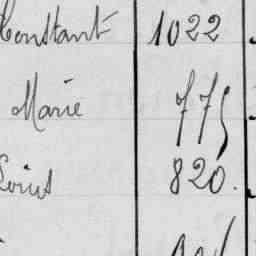 Constant 1022
Marie 775
Louis 820.